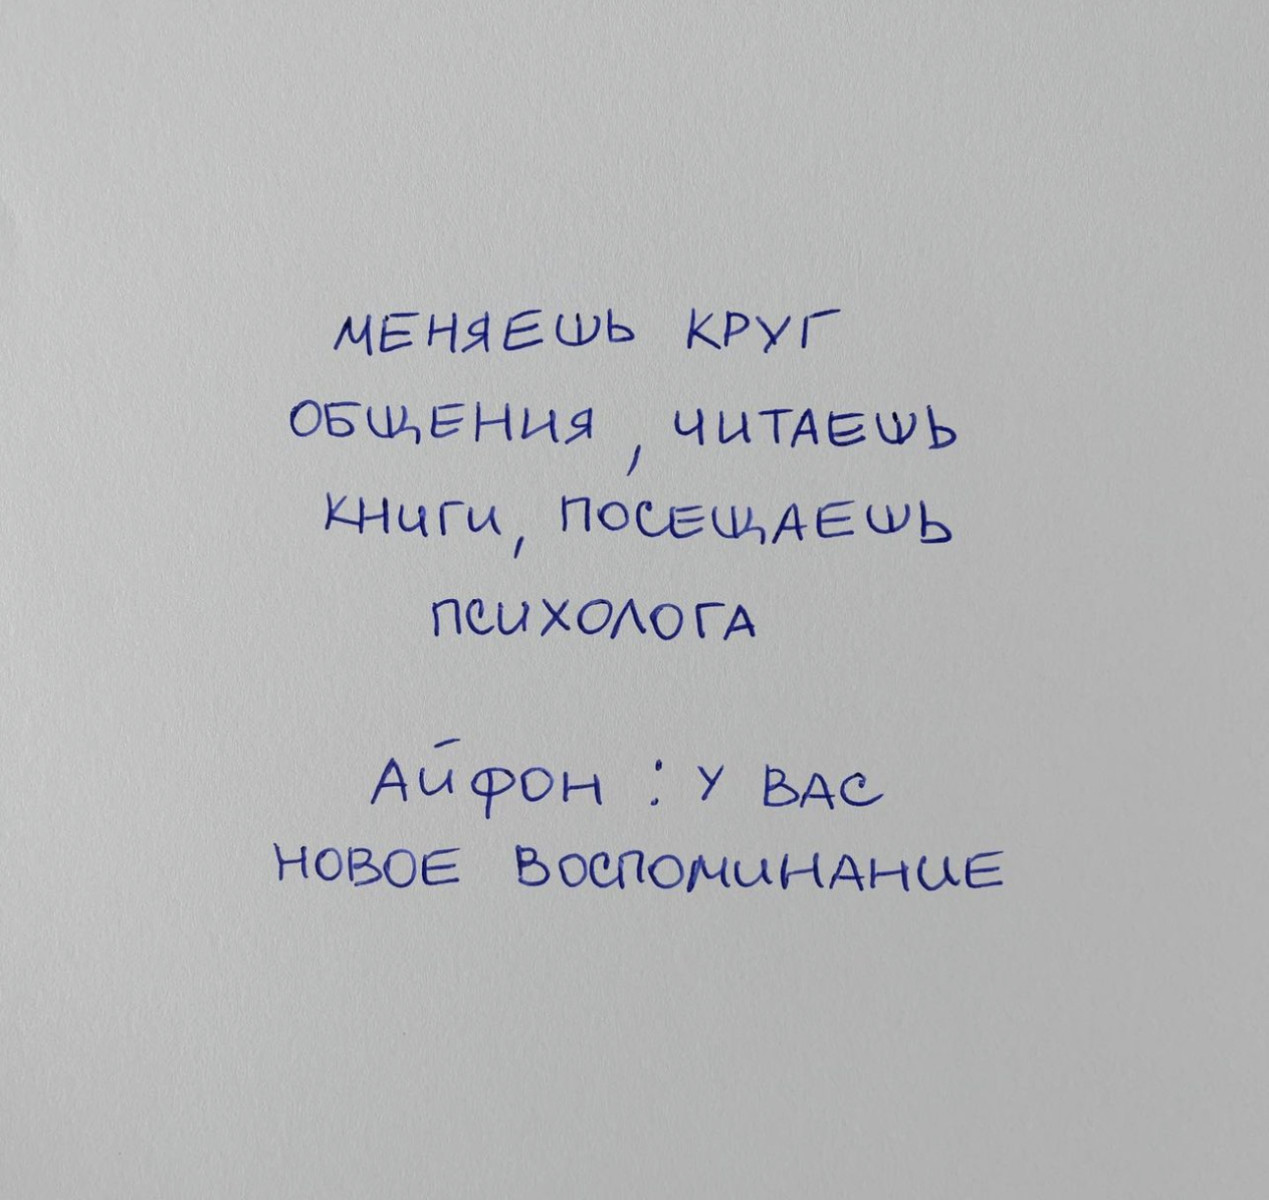 МЕНЯЕШЬ КРУГ
ОБЩЕНИЯ, ЧИТАЕШЬ
КНИГИ, ПОСЕЩАЕШЬ
ПСИХОЛОГА
АЙФОН: У ВАС
НОВОЕ ВОСПОМИНАНИЕ